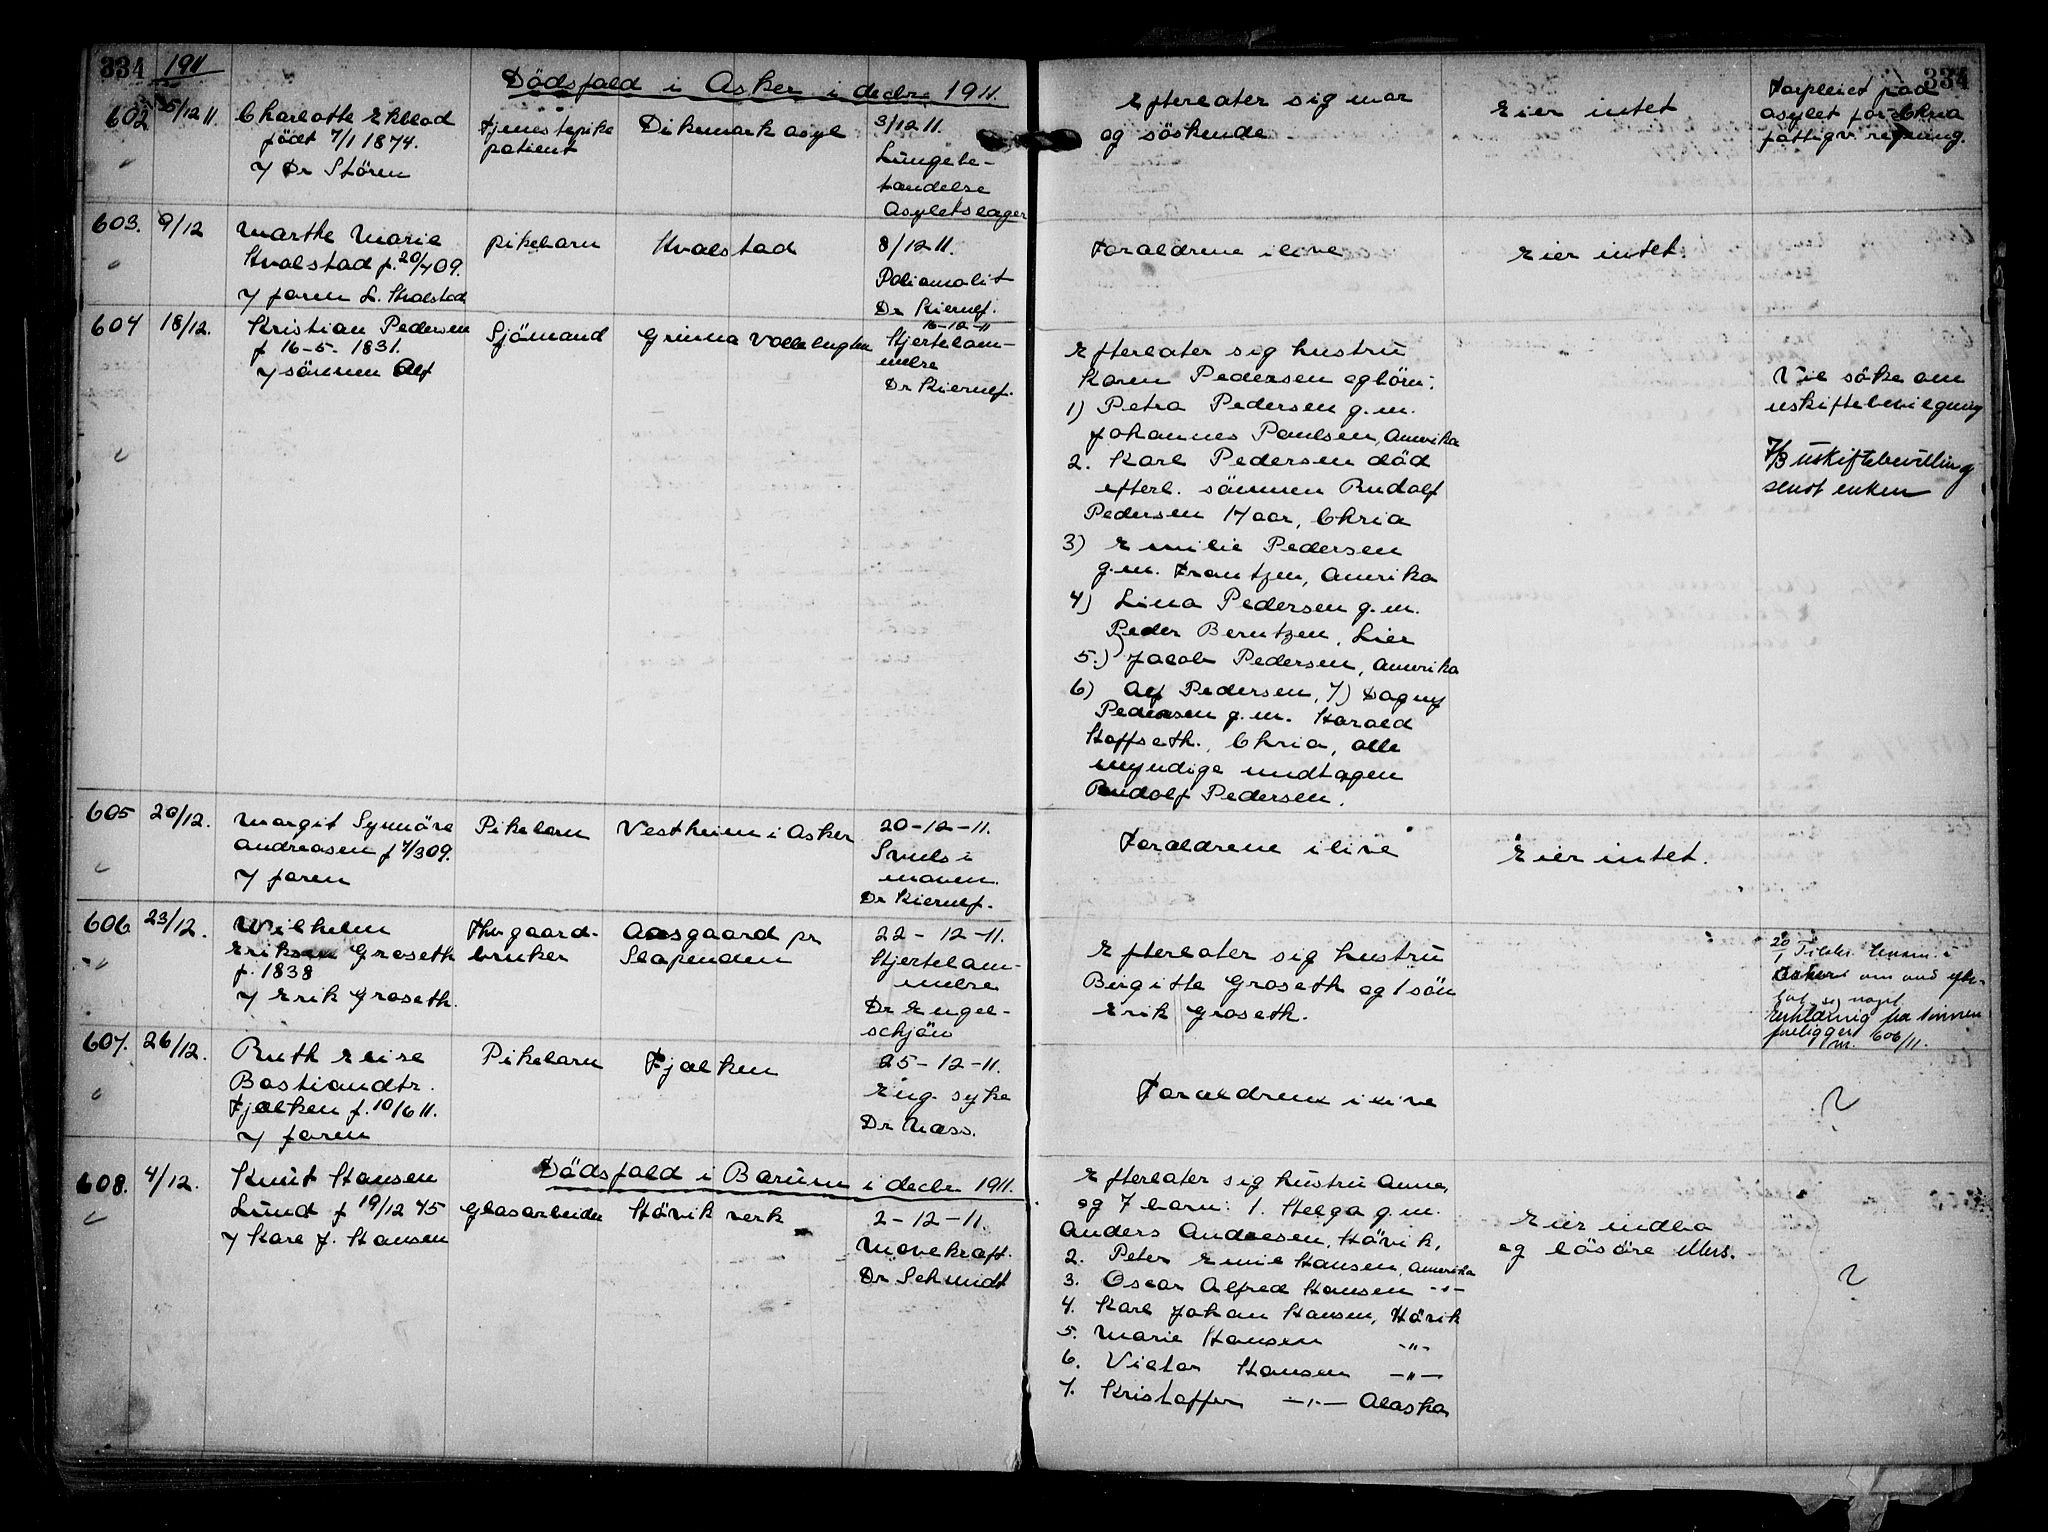 334
1911
Dödsfald i Asker i decbr 1911.
602
5/12 11.
Charlotte Ekblad
födt 7/1 1874.
v/ Dr Stören
tjenestepike
patient
Dikemark asyl
3/12 11.
Lungebe-
tændelse
Asylets læger
Efterlater sig mor
og söskende
Eier intet
Forpleiet paa
asylet for Chria
fattigv. regning.
603.
9/12
Marthe Marie
Hvalstad f. 20/4 09.
v/ faren L. Hvalstad
pikebarn
Hvalstad
8/12 11.
Poliomalit
Dr Kierulf.
Forældrene ilive
Eier intet.
604
18/12.
Kristian Pedersen
f 16-5-1831.
v/ sönnen Alf
Sjömand
Grinna Vollebugten
16-12-11
Hjertelam-
melse
Dr Kierulf.
Efterlater sig hustru
Karen Pedersen og börn:
1) Petra Pedersen g.m.
Johannes Paulsen, Amerika
2. Karl Pedersen död
efterl. sönnen Rudolf
Pedersen 17 aar, Chria
3) Emilie Pedersen
g.m. Frantzen, Amerika
4) Lina Pedersen g.m.
Peder Berntzen, Lier
5.) Jacob Pedersen, Amerika
6) Alf Pedersen, 7) Dagny
Pedersen g.m. Harald
Hoffseth., Chria, alle
myndige undtagen
Rudolf Pedersen.
Vil söke om
uskiftebevilgning
7/3 uskiftebevilling
sendt enken
605
20/12.
Margit Synnöve
Andreasen f 7/3 09.
v/ faren
Pikebarn
Vestheim i Asker
20-12-11.
Svuls i
maven.
Dr Kierulf.
Forældrene ilive
Eier intet.
606
23/12.
Wilhelm
Eriksen Groseth
f. 1838
v/ Erik Groseth.
Fhv gaard-
bruker
Aasgaard pr
Slependen
22-12-11.
Hjertelam-
melse
Dr Engel-
schjön
Efterlater sig hustru
Birgitte Groseth og 1 sön
Erik Groseth.
20/1 Tilskr. lensm. i
Asker om avd efter-
lot sig noget
Erklæring fra sönnen
foreligger
606/11.
607.
26/12.
Ruth Elise
Bastiandtr.
Fjelken f. 10/6 11.
v/ faren
Pikebarn
Fjælken
25-12-11.
Eng. syke
Dr Næss.
Forældrene ilive
?
Dödsfald i Bærum i decbr 1911.
608.
4/12.
Knut Hansen
Lund f 19/12 45
v/ Karl J. Hansen
glasarbeider
Hövik verk
2-12-11.
Mavekræft.
Dr Schmidt
Efterlater sig hustru Anne,
og 7 barn: 1. Helga g.m.
Anders Andresen, Hövik,
2. Peter Emil Hansen, Amerika
3. Oscar Alfred Hansen -"-
4. Karl Johan Hansen, Hövik
5. Marie Hansen -"-
6. Victor Hansen -"-
7. Kristoffer -"- Alaska
Eier indbo
og lösöre
?
334